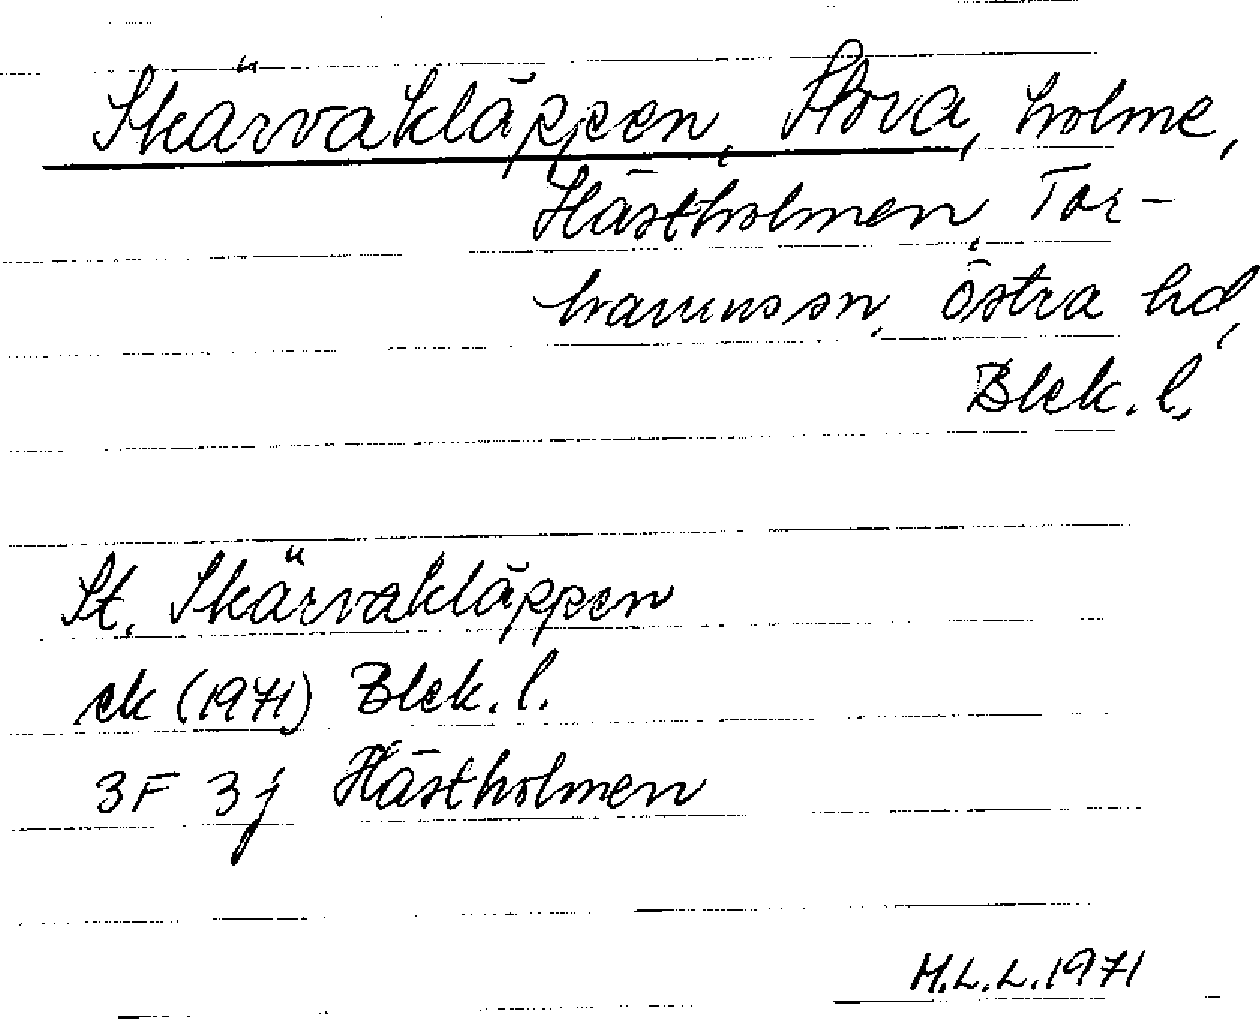 Skärvakläppen, Stora, holme,
Hästholmen, Tor-
hamns sn, Östra hd,
Blek. l.
St. Skärvakläppen
ek (1971) Blek. l.
3F 3j Hästholmen
H.L.L. 1971